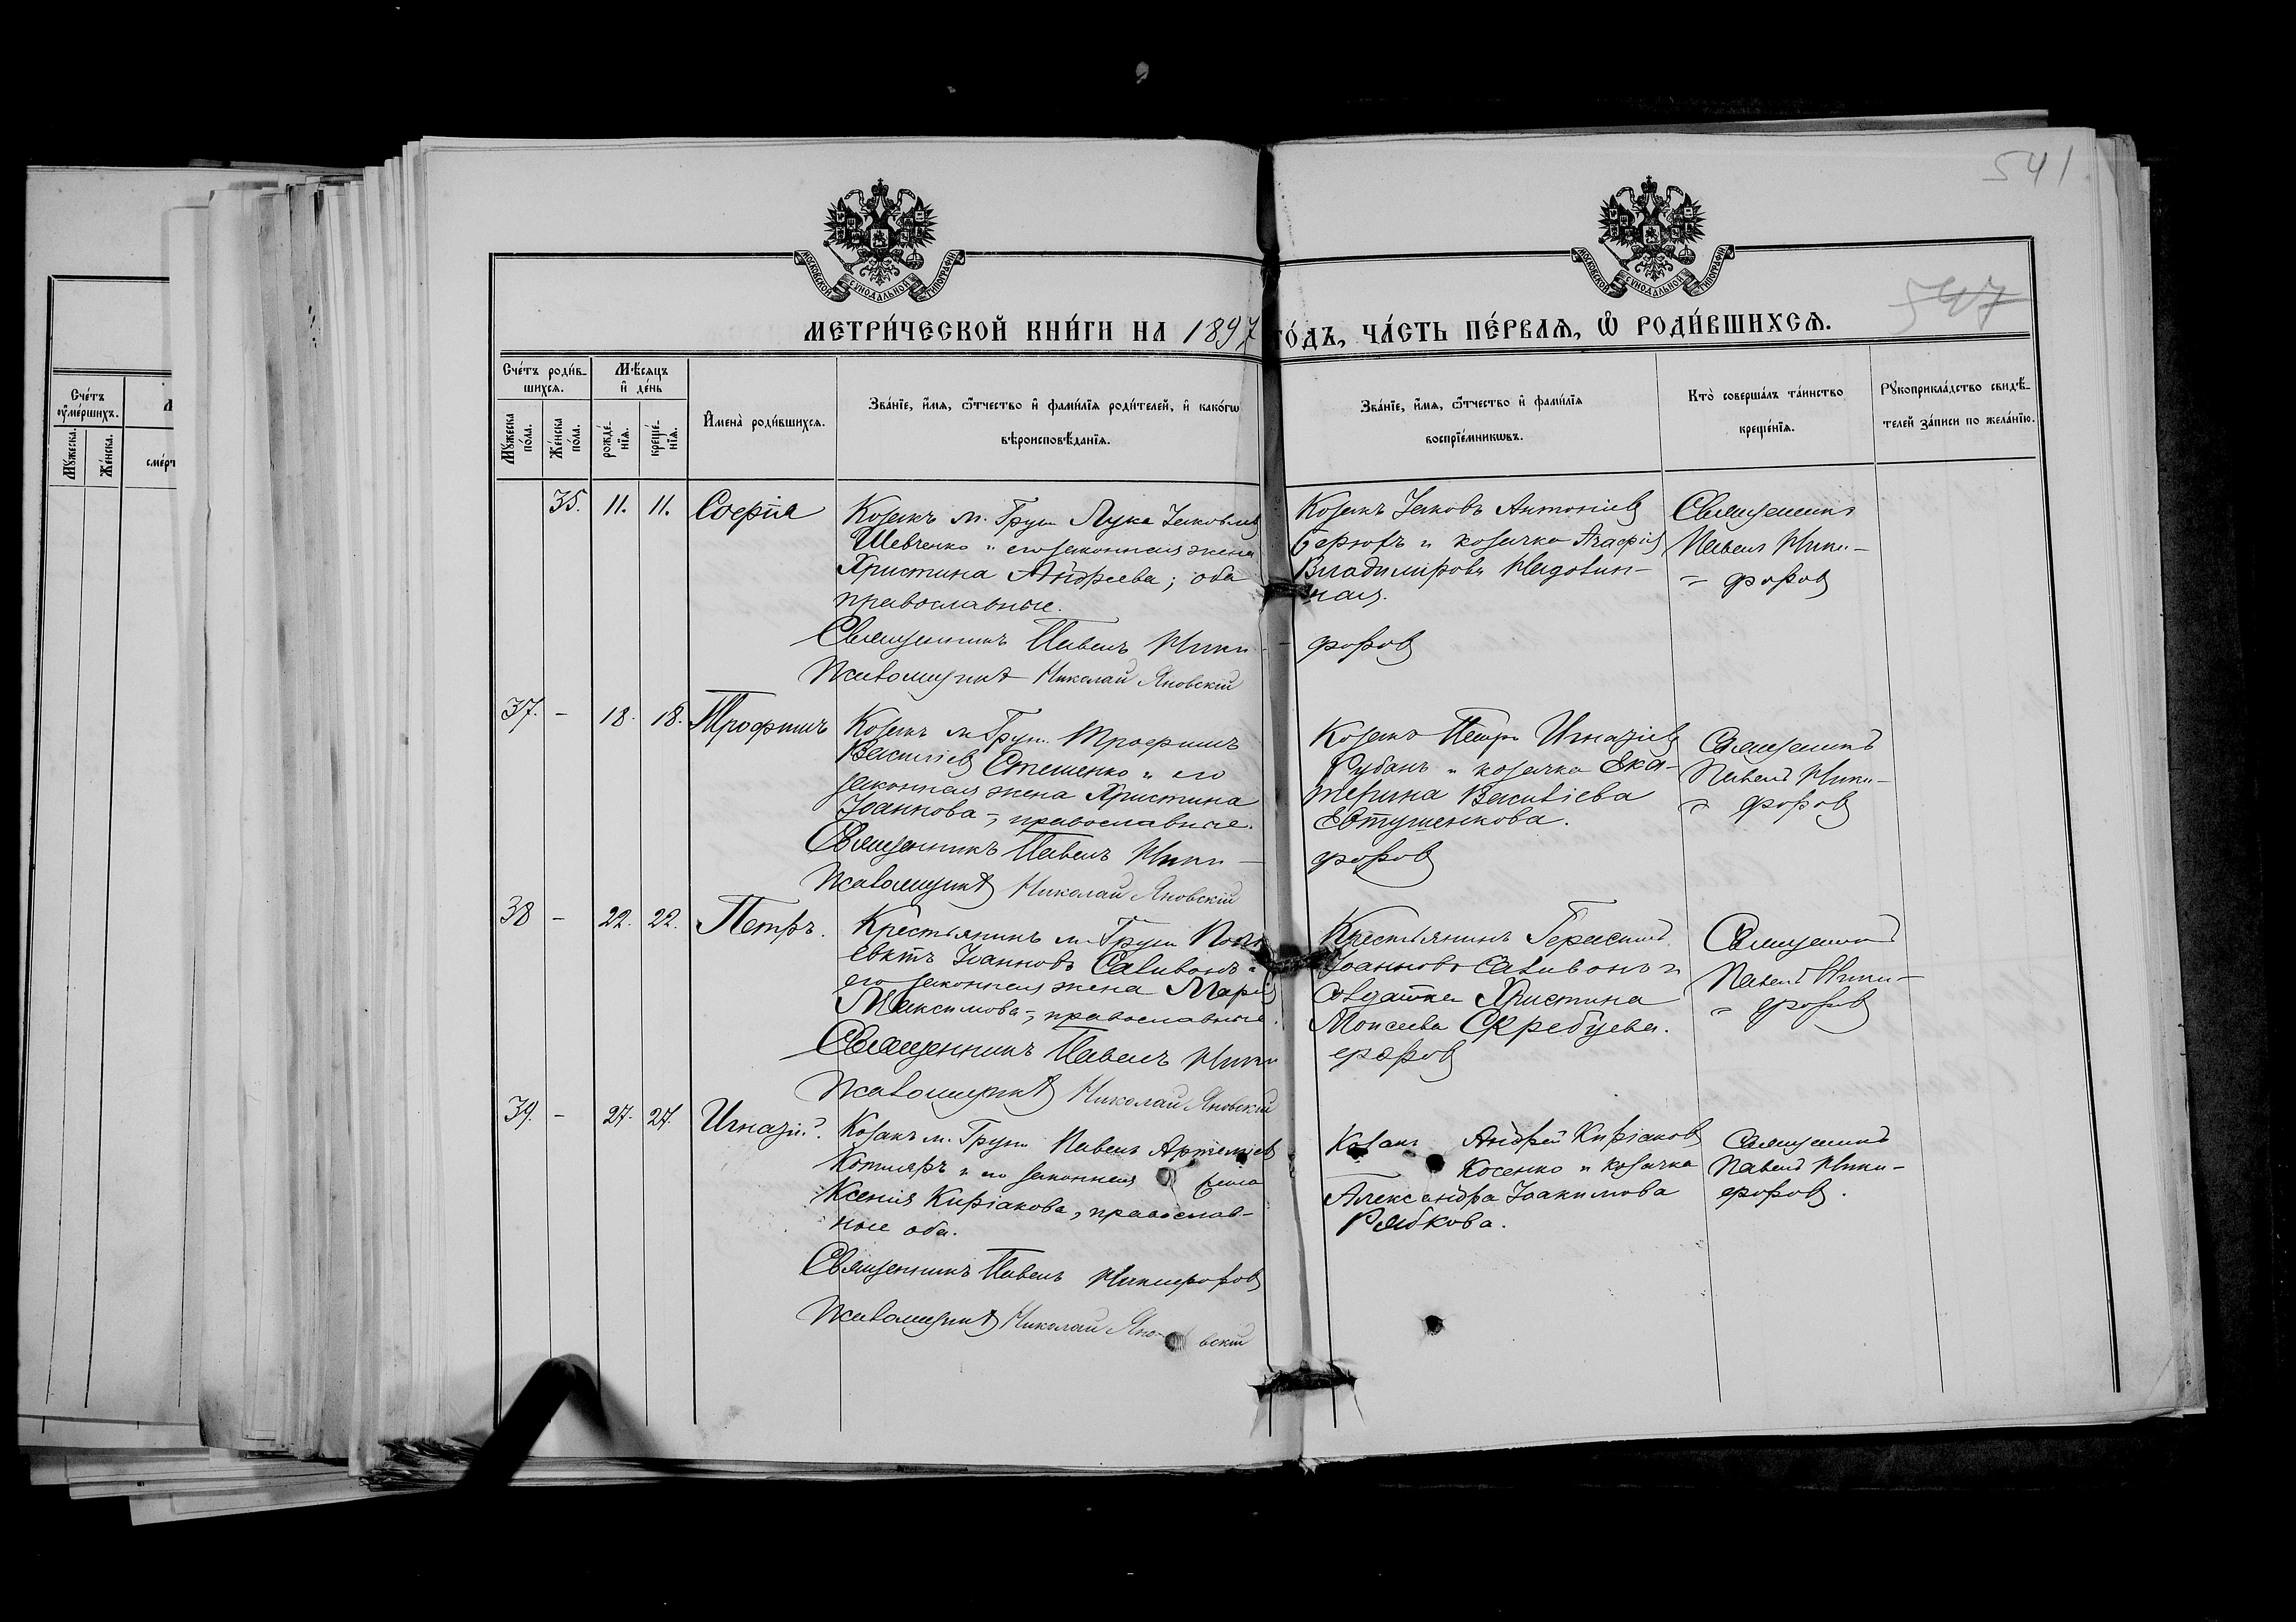 541
547
МОСКОВСКОЙ СѴНОДАЛЬНОЙ ТИПОГРАФІИ
МОСКОВСКОЙ СѴНОДАЛЬНОЙ ТИПОГРАФІИ
МЕТРИ́ЧЕСКОЙ КНИ́ГИ НА 1897 ГО́ДЪ, ЧА́СТЬ ПЕ́РВАѦ, Ѡ҆ РОДИ́ВШИХСѦ.
Сче́тъ роди́в-
шихсѧ.
Мѣ́сѧцъ
и҆ де́нь
Мꙋ́жеска по́ла.
Же́нска по́ла.
рожде́-
нїѧ.
креще́-
нїѧ.
И҆мена̀ роди́вшихсѧ.
Зва́нїе, и҆́мѧ, ѻ҆́тчество и҆ фами́лїѧ роди́телей, и҆ како́гѡ
вѣроисповѣ́данїѧ.
Зва́нїе, и҆́мѧ, ѻ҆́тчество и҆ фами́лїѧ
воспрїе́мникѡвъ.
Кто̀ соверша́лъ та́инство
креще́нїѧ.
Рꙋкоприкла́дство свидѣ́-
телей за́писи по жела́нїю.
Сче́тъ
ᲂу҆ме́ршихъ.
Мꙋ́жеска.
Же́нска.
сме́рт
35. 11. 11. Софія
Козакъ м. Грун Лука Іаковлев
Шевченко и его законная жена
Христина Андреева; оба
православные.
Священникъ Павелъ Ники-
Псаломщикъ Николай Яновскій
Козакъ Іаковъ Антоніев
и козачка Агафія
Владимірова
ная.
форов
Священникъ
Павелъ Ники-
форов
37. - 18. 18. Трофимъ
Козакъ м. Грун. Трофимъ
Василіев Стешенко и его
законная жена Христина
Іоаннова -, православные.
Священникъ Павелъ Ники-
Псаломщикъ Николай Яновскій
Козакъ Петръ Игнатіев
Рубанъ и козачка Ека-
терина Василіева
Евтушенкова.
форов
Священникъ
Павелъ Ники-
форов
38 - 22. 22. Петръ.
Крестьянинъ м. Грун Поли
евктъ Іоанновъ Саливонъ и
его законная жена Марія
Максимова -, православные.
Священникъ Павелъ Ники
Псаломщикъ Николай Яновскій
Крестьянинъ Герасимъ
Іоанновъ Саливонъ и
солдатка Христина
Моисеева Скребцева.
форов
Священникъ
Павелъ Ники-
форов
39. - 27. 27. Игнатій.
Козакъ м. Грун Павелъ Артеміев
Котляръ и его законная жена
Ксенія Киріакова, православ-
ные оба.
Священникъ Павелъ Никифоров
Псаломщикъ Николай Яновскій
Козакъ Андрей Киріаков
Косенко и козачка
Александра Іоакимова
Рябкова.
Священникъ
Павелъ Ники-
форов.